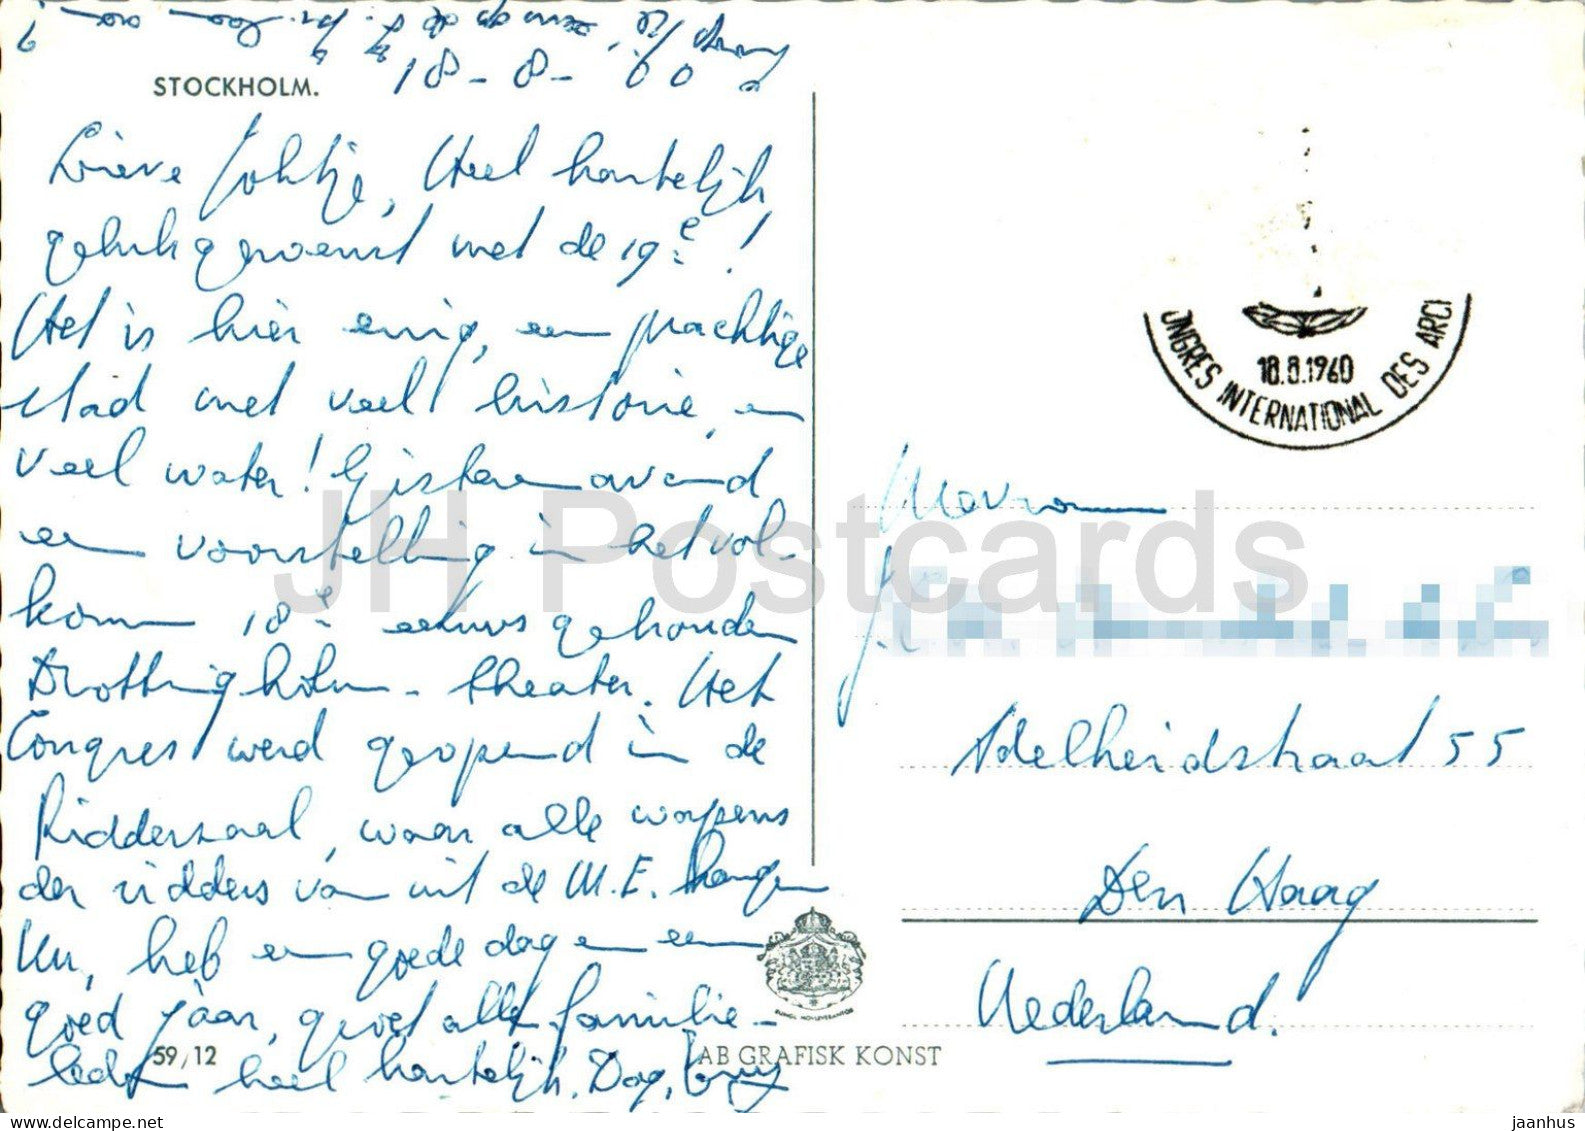 STOCKHOLM.
18-8-60
Lieve Johtje, Heel hartelijk
gelukgewenst met de 19e!
Het is hier enig, een prachtige
stad met veel historie, en
veel water! Gisteren avond
een voorstelling in het vol-
komen 18e eeuws gehouden
Drottningholm-theater. Het
Congres werd geopend in de
Ridderzaal, waar alle wapens
der ridders van uit de M.E. hangen
Nu, heb een goede dag en een
goed jaar, groet alle familie-
leden heel hartelijk. Dag,
59/12
AB GRAFISK KONST
NGRES INTERNATIONAL DES ARCI
18.8.1960
Mevrouw
Adelheidstraat 55
Den Haag
Nederland.
JH Postcards
delcampe.net
jaanhus